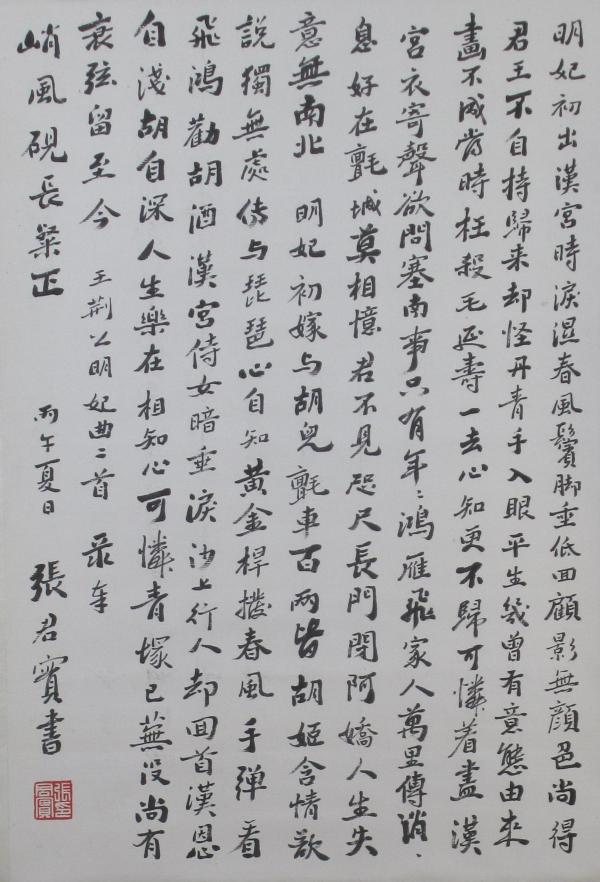 明妃初出漢宮時淚濕春風鬢脚垂低回顧影無顔色尚得
君王不自持歸来却怪丹青手入眼平生幾曾有意態由來
畫不成當時枉殺毛延壽一去心知更不歸可憐着盡漢
宮衣寄聲欲問塞南事只有年〻鴻雁飛家人萬里傳消、
息好在氈城莫相憶君不見咫尺長門閉阿嬌人生失
意無南北 明妃初嫁与胡兒氈車百兩皆胡姬含情欲
說獨無處傳与琵琶心自知黃金桿撥春風手彈看
飛鴻勸胡酒漢宮侍女暗垂淚沙上行人却回首漢恩
自淺胡自深人生樂在相知心可憐青塚已蕪没尚有
哀弦留至今 王荊公明妃曲二首 录奉
峭風硯長粲正 丙午夏日 張君實書
張君實印